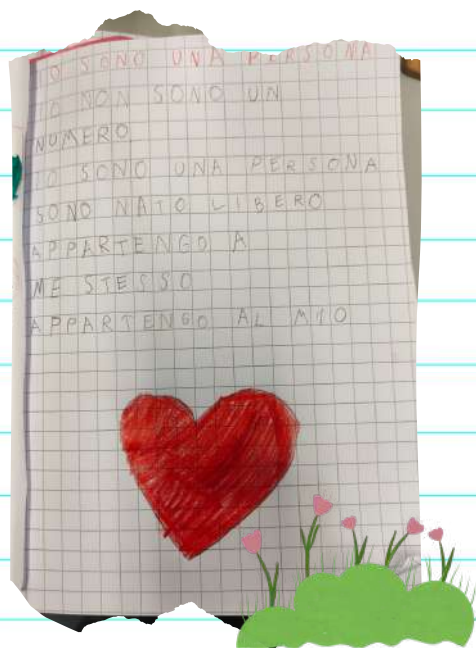 IO SONO UNA PERSONA
IO NON SONO UN
NUMERO
IO SONO UNA PERSONA
SONO NATO LIBERO
APPARTENGO A
ME STESSO
APPARTENGO AL MIO